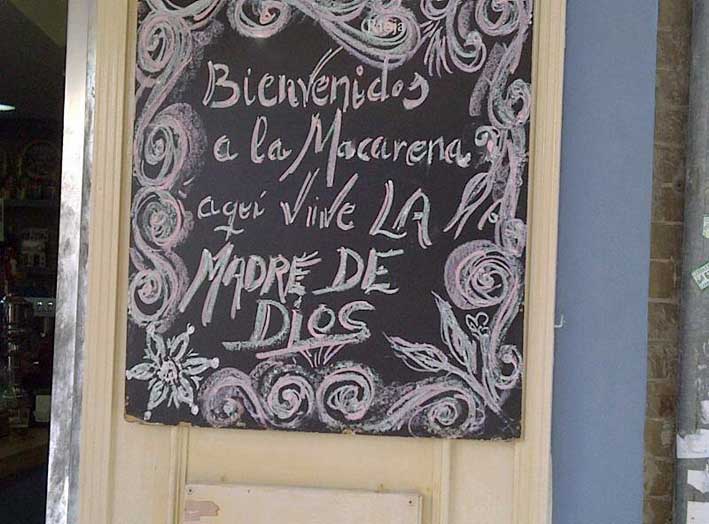 Rioja
Bienvenidos
a la Macarena
aquí vive LA
MADRE DE
DIOS